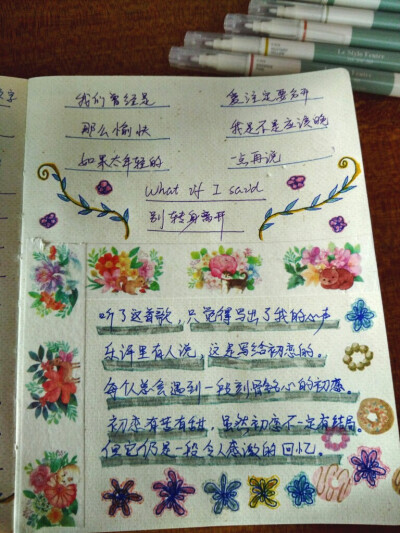 我们曾经是
爱注定要分开
那么愉快
我是不是应该晚
如果太年轻的
一点再说
What if I said
别转身离开
听了这首歌，只觉得写出了我的心声
乐评里有人说，这是写给初恋的。
每个人总会遇到一段刻骨铭心的初恋。
初恋有苦有甜，虽然初恋不一定有结局。
但它仍是一段令人感激的回忆。
Le Style Fonter
字